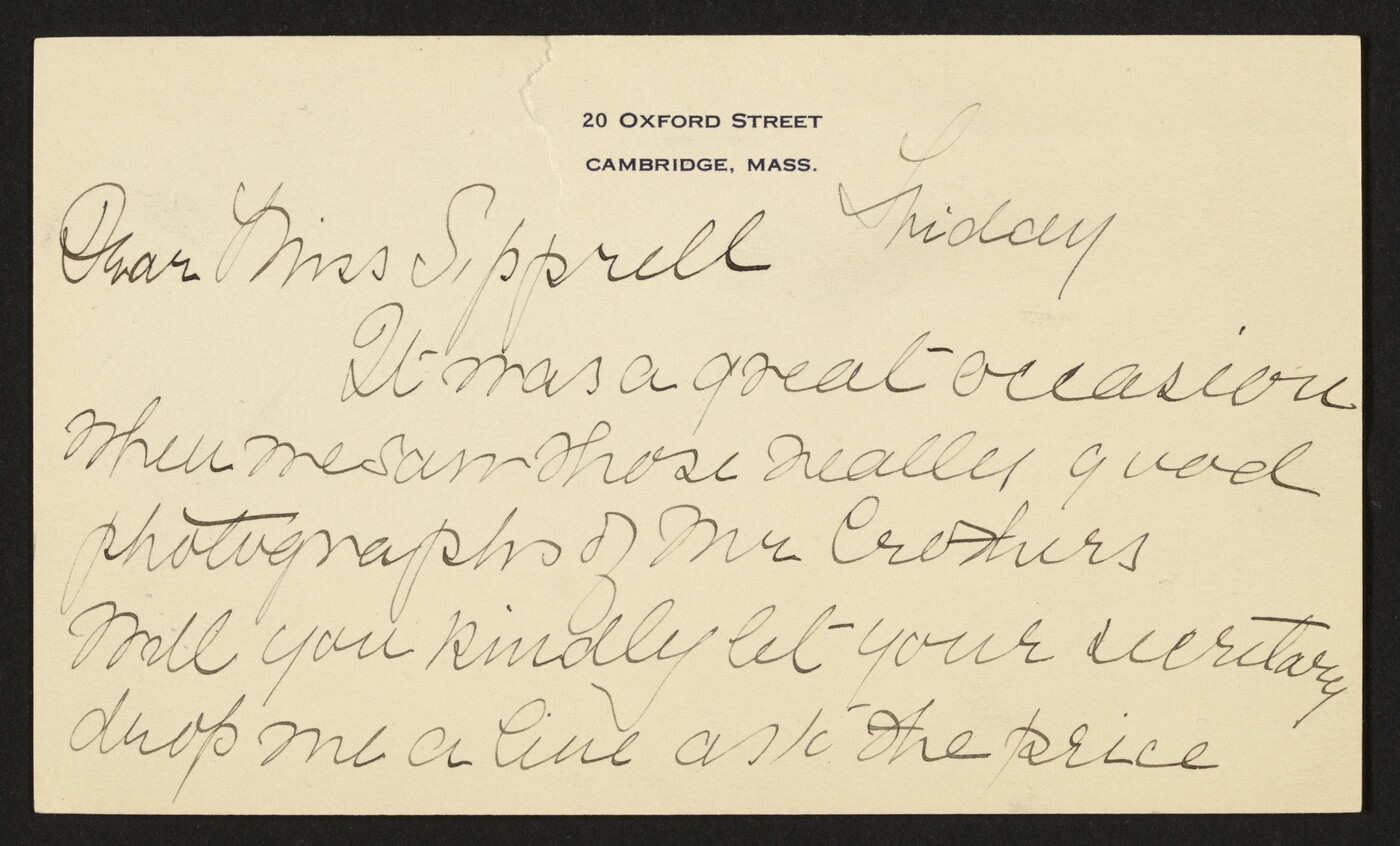 20 OXFORD STREET
CAMBRIDGE, MASS.
Friday
Dear Miss Sipprell
It was a great occasion
when we saw those really good
photographs of Mr Crothers
Will you kindly let your secretary
drop me a line ask the price